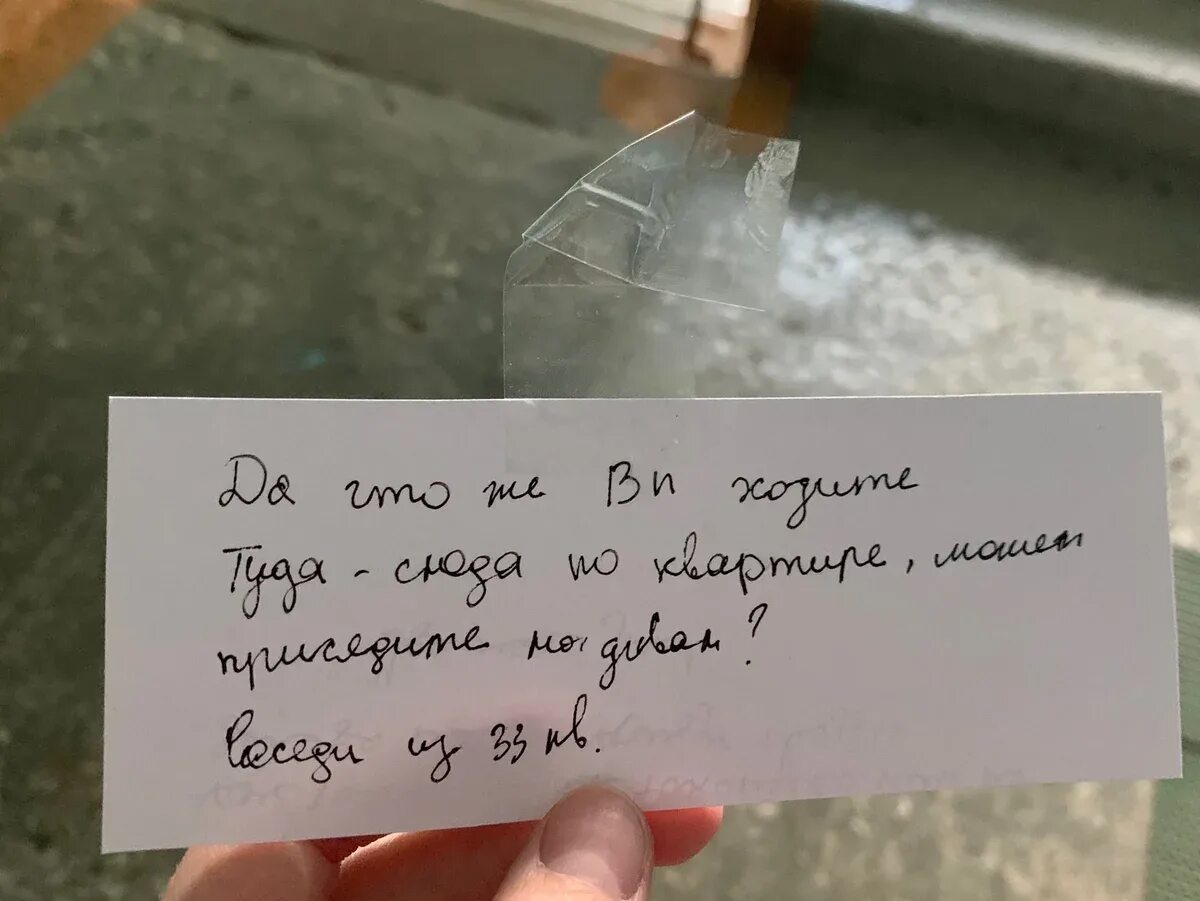 Да что же Вы ходите
Туда - сюда по квартире, может
присядите на диван?
Соседи из 33 кв.